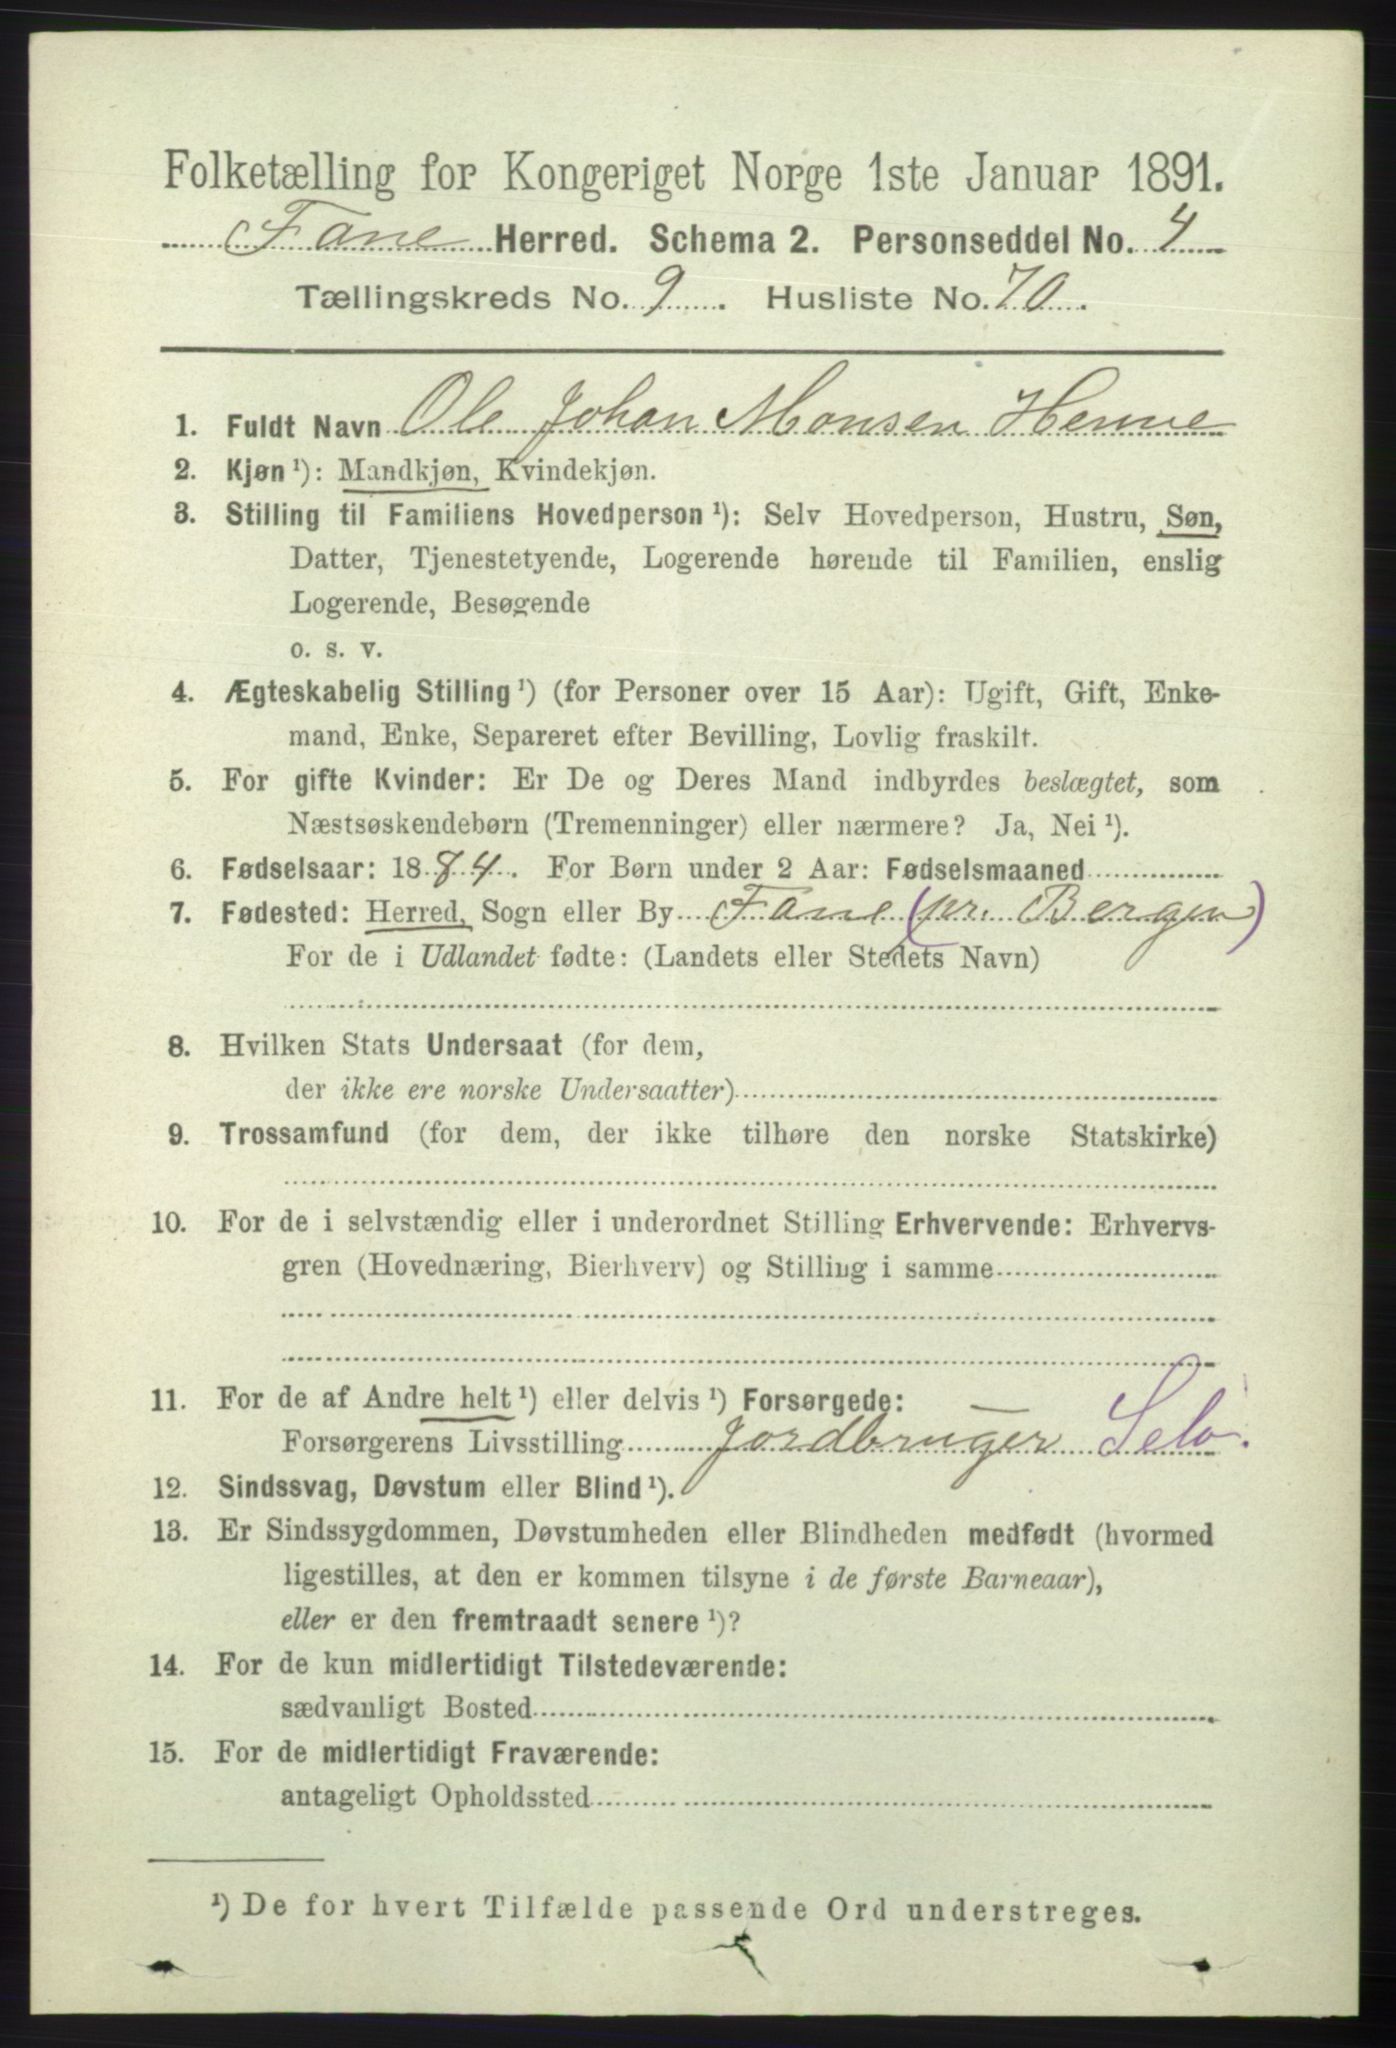 Folketælling for Kongeriget Norge 1ste Januar 1891.
Fane Herred. Schema 2. Personseddel No. 4
Tællingskreds No. 9. Husliste No. 70.
1. Fuldt Navn Ole Johan Monsen Henne
2. Kjøn ¹): Mandkjøn, Kvindekjøn.
3. Stilling til Familiens Hovedperson ¹): Selv Hovedperson, Hustru, Søn,
Datter, Tjenestetyende, Logerende hørende til Familien, enslig
Logerende, Besøgende
o. s. v.
4. Ægteskabelig Stilling ¹) (for Personer over 15 Aar): Ugift, Gift, Enke-
mand, Enke, Separeret efter Bevilling, Lovlig fraskilt.
5. For gifte Kvinder: Er De og Deres Mand indbyrdes beslægtet, som
Næstsøskendebørn (Tremenninger) eller nærmere? Ja, Nei ¹).
6. Fødselsaar: 1884. For Børn under 2 Aar: Fødselsmaaned
7. Fødested: Herred, Sogn eller By Fane (pr. Bergen)
For de i Udlandet fødte: (Landets eller Stedets Navn)
8. Hvilken Stats Undersaat (for dem,
der ikke ere norske Undersaatter)
9. Trossamfund (for dem, der ikke tilhøre den norske Statskirke)
10. For de i selvstændig eller i underordnet Stilling Erhvervende: Erhvervs-
gren (Hovednæring, Bierhverv) og Stilling i samme
11. For de af Andre helt ¹) eller delvis ¹) Forsørgede:
Forsørgerens Livsstilling Jordbruger Selv.
12. Sindssvag, Døvstum eller Blind ¹).
13. Er Sindssygdommen, Døvstumheden eller Blindheden medfødt (hvormed
ligestilles, at den er kommen tilsyne i de første Barneaar),
eller er den fremtraadt senere ¹)?
14. For de kun midlertidigt Tilstedeværende:
sædvanligt Bosted
15. For de midlertidigt Fraværende:
antageligt Opholdssted
¹) De for hvert Tilfælde passende Ord understreges.